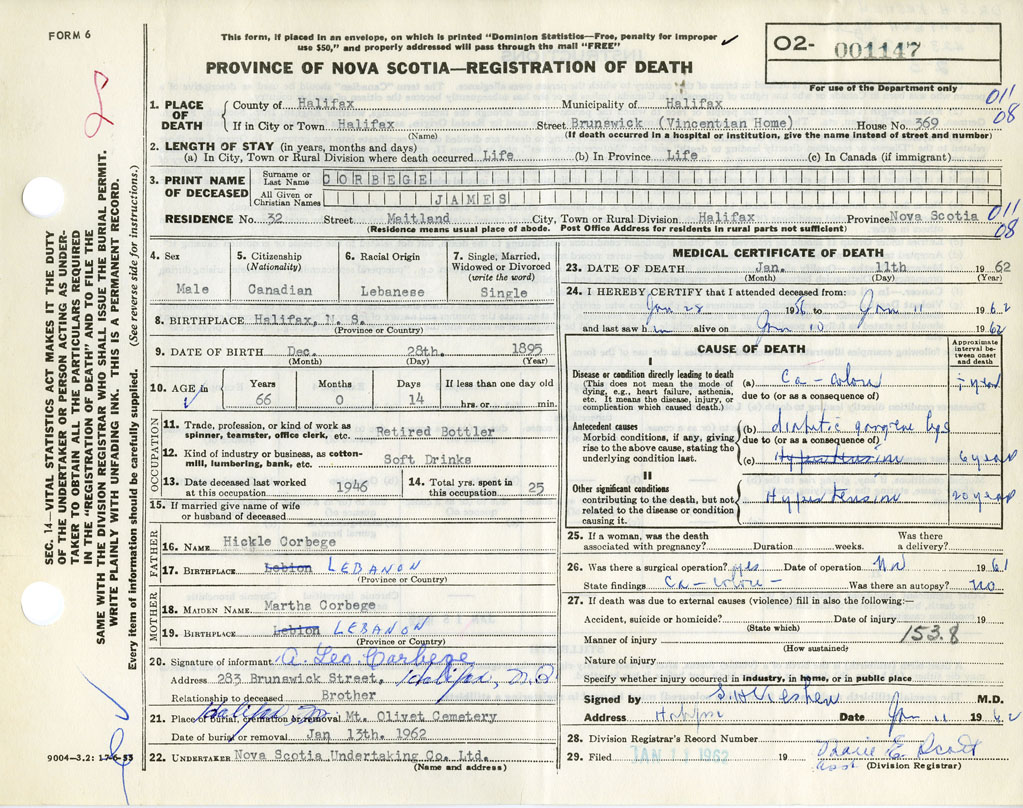 FORM 6
This form, if placed in an envelope, on which is printed "Dominion Statistics—Free, penalty for improper
use $50," and properly addressed will pass through the mail "FREE"
O2- 001147
For use of the Department only
PROVINCE OF NOVA SCOTIA—REGISTRATION OF DEATH
011
08
1. PLACE OF DEATH
County of Halifax Municipality of Halifax
If in City or Town Halifax Street Brunswick (Vincentian Home) House No. 369
(Name) (If death occurred in a hospital or institution, give the name instead of street and number)
2. LENGTH OF STAY (in years, months and days)
(a) In City, Town or Rural Division where death occurred Life (b) In Province Life (c) In Canada (if immigrant)
3. PRINT NAME OF DECEASED
Surname or Last Name CORBEGE
All Given or Christian Names JAMES
RESIDENCE No. 32 Street Maitland City, Town or Rural Division Halifax Province Nova Scotia
011
08
(Residence means usual place of abode. Post Office Address for residents in rural parts not sufficient)
4. Sex
Male
5. Citizenship
(Nationality)
Canadian
6. Racial Origin
Lebanese
7. Single, Married,
Widowed or Divorced
(write the word)
Single
8. BIRTHPLACE Halifax, N. S.
(Province or Country)
9. DATE OF BIRTH Dec. 28th. 1895
(Month) (Day) (Year)
10. AGE in
Years Months Days If less than one day old
66 0 14 hrs. or min.
OCCUPATION
11. Trade, profession, or kind of work as
spinner, teamster, office clerk, etc. Retired Bottler
12. Kind of industry or business, as cotton-
mill, lumbering, bank, etc. Soft Drinks
13. Date deceased last worked
at this occupation 1946
14. Total yrs. spent in
this occupation 25
15. If married give name of wife
or husband of deceased
FATHER
16. NAME Hickle Corbege
17. BIRTHPLACE Lebion LEBANON
(Province or Country)
MOTHER
18. MAIDEN NAME Martha Corbege
19. BIRTHPLACE Lebion LEBANON
(Province or Country)
20. Signature of informant A. Leo Corbege
Address 283 Brunswick Street, Halifax, N.S.
Relationship to deceased Brother
21. Place of burial, cremation or removal Mt. Olivet Cemetery
Halifax
Date of burial or removal Jan 13th. 1962
22. UNDERTAKER Nova Scotia Undertaking Co. Ltd.
(Name and address)
MEDICAL CERTIFICATE OF DEATH
23. DATE OF DEATH Jan. 11th 1962
(Month) (Day) (Year)
24. I HEREBY CERTIFY that I attended deceased from:
Jan 28 1956 to Jan 11 1962
and last saw him alive on Jan 10 1962
CAUSE OF DEATH
Approximate
interval be-
tween onset
and death
I
Disease or condition directly leading to death
(This does not mean the mode of
dying, e.g., heart failure, asthenia,
etc. It means the disease, injury, or
complication which caused death.)
(a) Ca - colon
due to (or as a consequence of)
Antecedent causes
Morbid conditions, if any, giving
rise to the above cause, stating the
underlying condition last.
(b) diabetic gangrene legs
due to (or as a consequence of)
(c) Hypertension 6 years
II
Other significant conditions
contributing to the death, but not
related to the disease or condition
causing it.
Hypertension 20 years
25. If a woman, was the death
associated with pregnancy? Duration weeks. Was there
a delivery?
26. Was there a surgical operation? yes Date of operation Nov 1961
State findings Ca-colon- Was there an autopsy? no
27. If death was due to external causes (violence) fill in also the following:—
Accident, suicide or homicide? Date of injury 19
(State which)
Manner of injury 153.8
(How sustained)
Nature of injury
Specify whether injury occurred in industry, in home, or in public place
Signed by M.D.
Address Halifax Date Jan 11 1962
28. Division Registrar's Record Number
29. Filed JAN 11 1962 19 E Scott
asst (Division Registrar)
SEC. 14—VITAL STATISTICS ACT MAKES IT THE DUTY
OF THE UNDERTAKER OR PERSON ACTING AS UNDER-
TAKER TO OBTAIN ALL THE PARTICULARS REQUIRED
IN THE "REGISTRATION OF DEATH" AND TO FILE THE
SAME WITH THE DIVISION REGISTRAR WHO SHALL ISSUE THE BURIAL PERMIT.
WRITE PLAINLY WITH UNFADING INK. THIS IS A PERMANENT RECORD.
Every item of information should be carefully supplied. (See reverse side for instructions.)
9004-3.2: